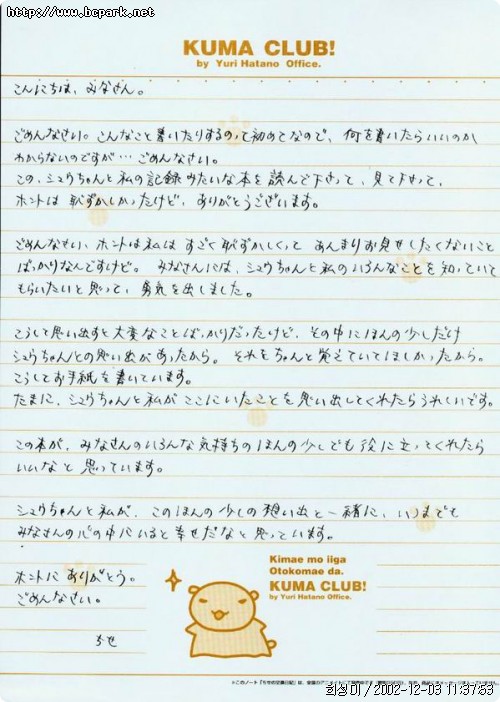 http://www.bcpark.net
KUMA CLUB!
by Yuri Hatano Office.
こんにちは、みなさん。
ごめんなさい。こんなこと書いたりするのって初めてなので、何を書いたらいいのか
わからないのですが…ごめんなさい。
この、シュウちゃんと私の記録みたいな本を読んで下さって、見て下さって、
ホントは恥ずかしかったけど、ありがとうございます。
ごめんなさい、ホントは私はすごく恥ずかしくってあんまりお見せしたくないこと
ばっかりなんですけど。みなさんには、シュウちゃんと私のいろんなことを知っていて
もらいたいと思って、勇気を出しました。
こうして思い出すと大変なことばっかりだったけど、その中にほんの少しだけ
シュウちゃんとの思い出があったから。それをちゃんと覚えていてほしかったから。
こうしてお手紙を書いています。
たまに、シュウちゃんと私がここにいたことを思い出してくれたらうれしいです。
この本が、みなさんのいろんな気持ちのほんの少しでも役に立ってくれたら
いいなと思っています。
シュウちゃんと私が、このほんの少しの想い出と一緒に、いつまでも
みなさんの心の中にいると幸せだなと思っています。
ホントにありがとう。
ごめんなさい。
ちせ
Kimae mo iiga
Otokomae da.
KUMA CLUB!
by Yuri Hatano Office.
2002-12-03 11:37:53